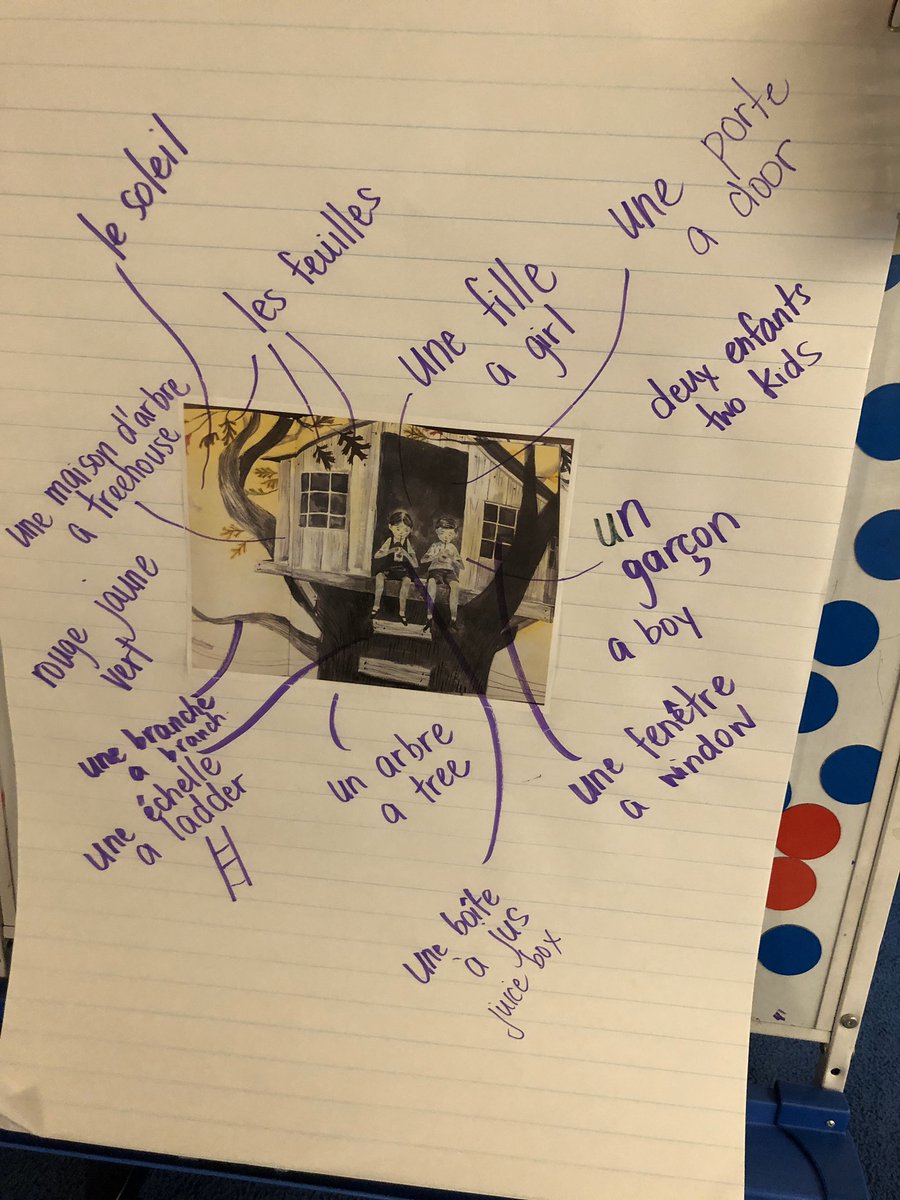 le soleil
les feuilles
une porte
a door
une fille
a girl
deux enfants
two kids
une maison d'arbre
a treehouse
un
garçon
a boy
rouge jaune
vert
une branche
a branch
une échelle
a ladder
un arbre
a tree
une fenêtre
a window
une boîte
à jus
juice box